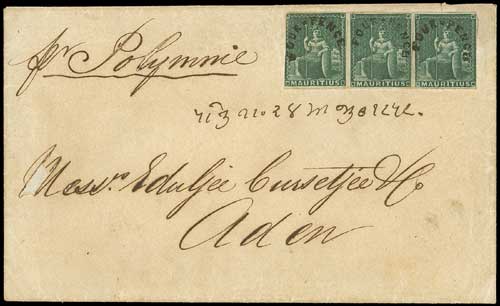 pr Polymnie
FOUR-PENCE FOUR-PENCE FOUR-PENCE
MAURITIUS MAURITIUS MAURITIUS
Messrs Eduljee Cursetjee & Co
Aden